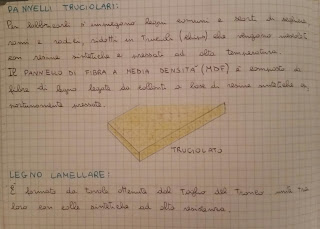 PANNELLI TRUCIOLARI:
Per fabbricarli s'impiegano legni comuni e scarti di segheria
rami e radici, ridotti in trucioli (chips) che vengono incollati
con resine sintetiche e pressati ad alta temperatura.
IL PANNELLO DI FIBRA A MEDIA DENSITA' (MDF) è composto da
fibre di legno legate da collanti a base di resine sintetiche e,
pressate.
TRUCIOLATO
LEGNO LAMELLARE:
È formato da tavole ottenute dal taglio del tronco unite tra
loro con colle sintetiche ad alta resistenza.